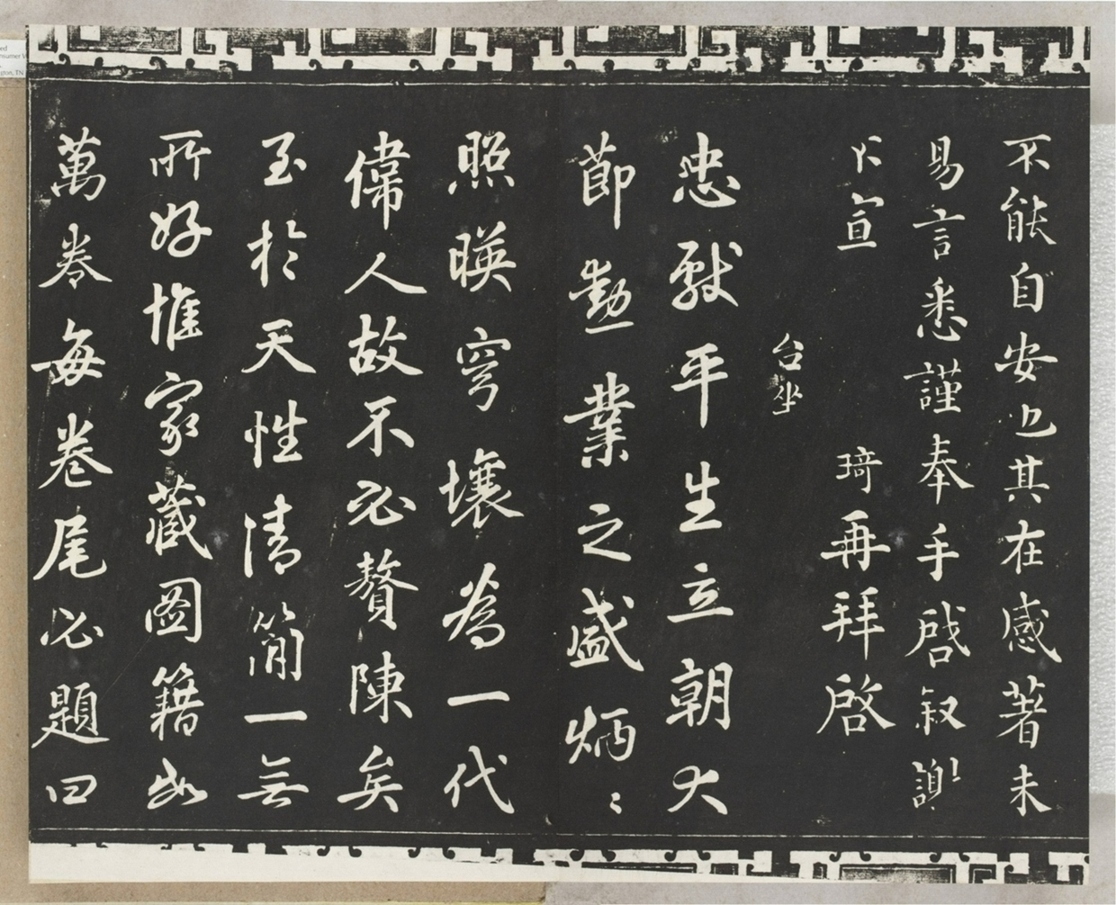 不能自安也其在感著未
易言悉謹奉手啓叙謝
不宣 琦再拜啓
台坐
忠獻平生立朝大
節勳業之盛炳〻
照暎穹壤為一代
偉人故不必贅陳矣
至於天性清簡一無
所好惟家藏圖籍數
萬卷每卷尾必題曰